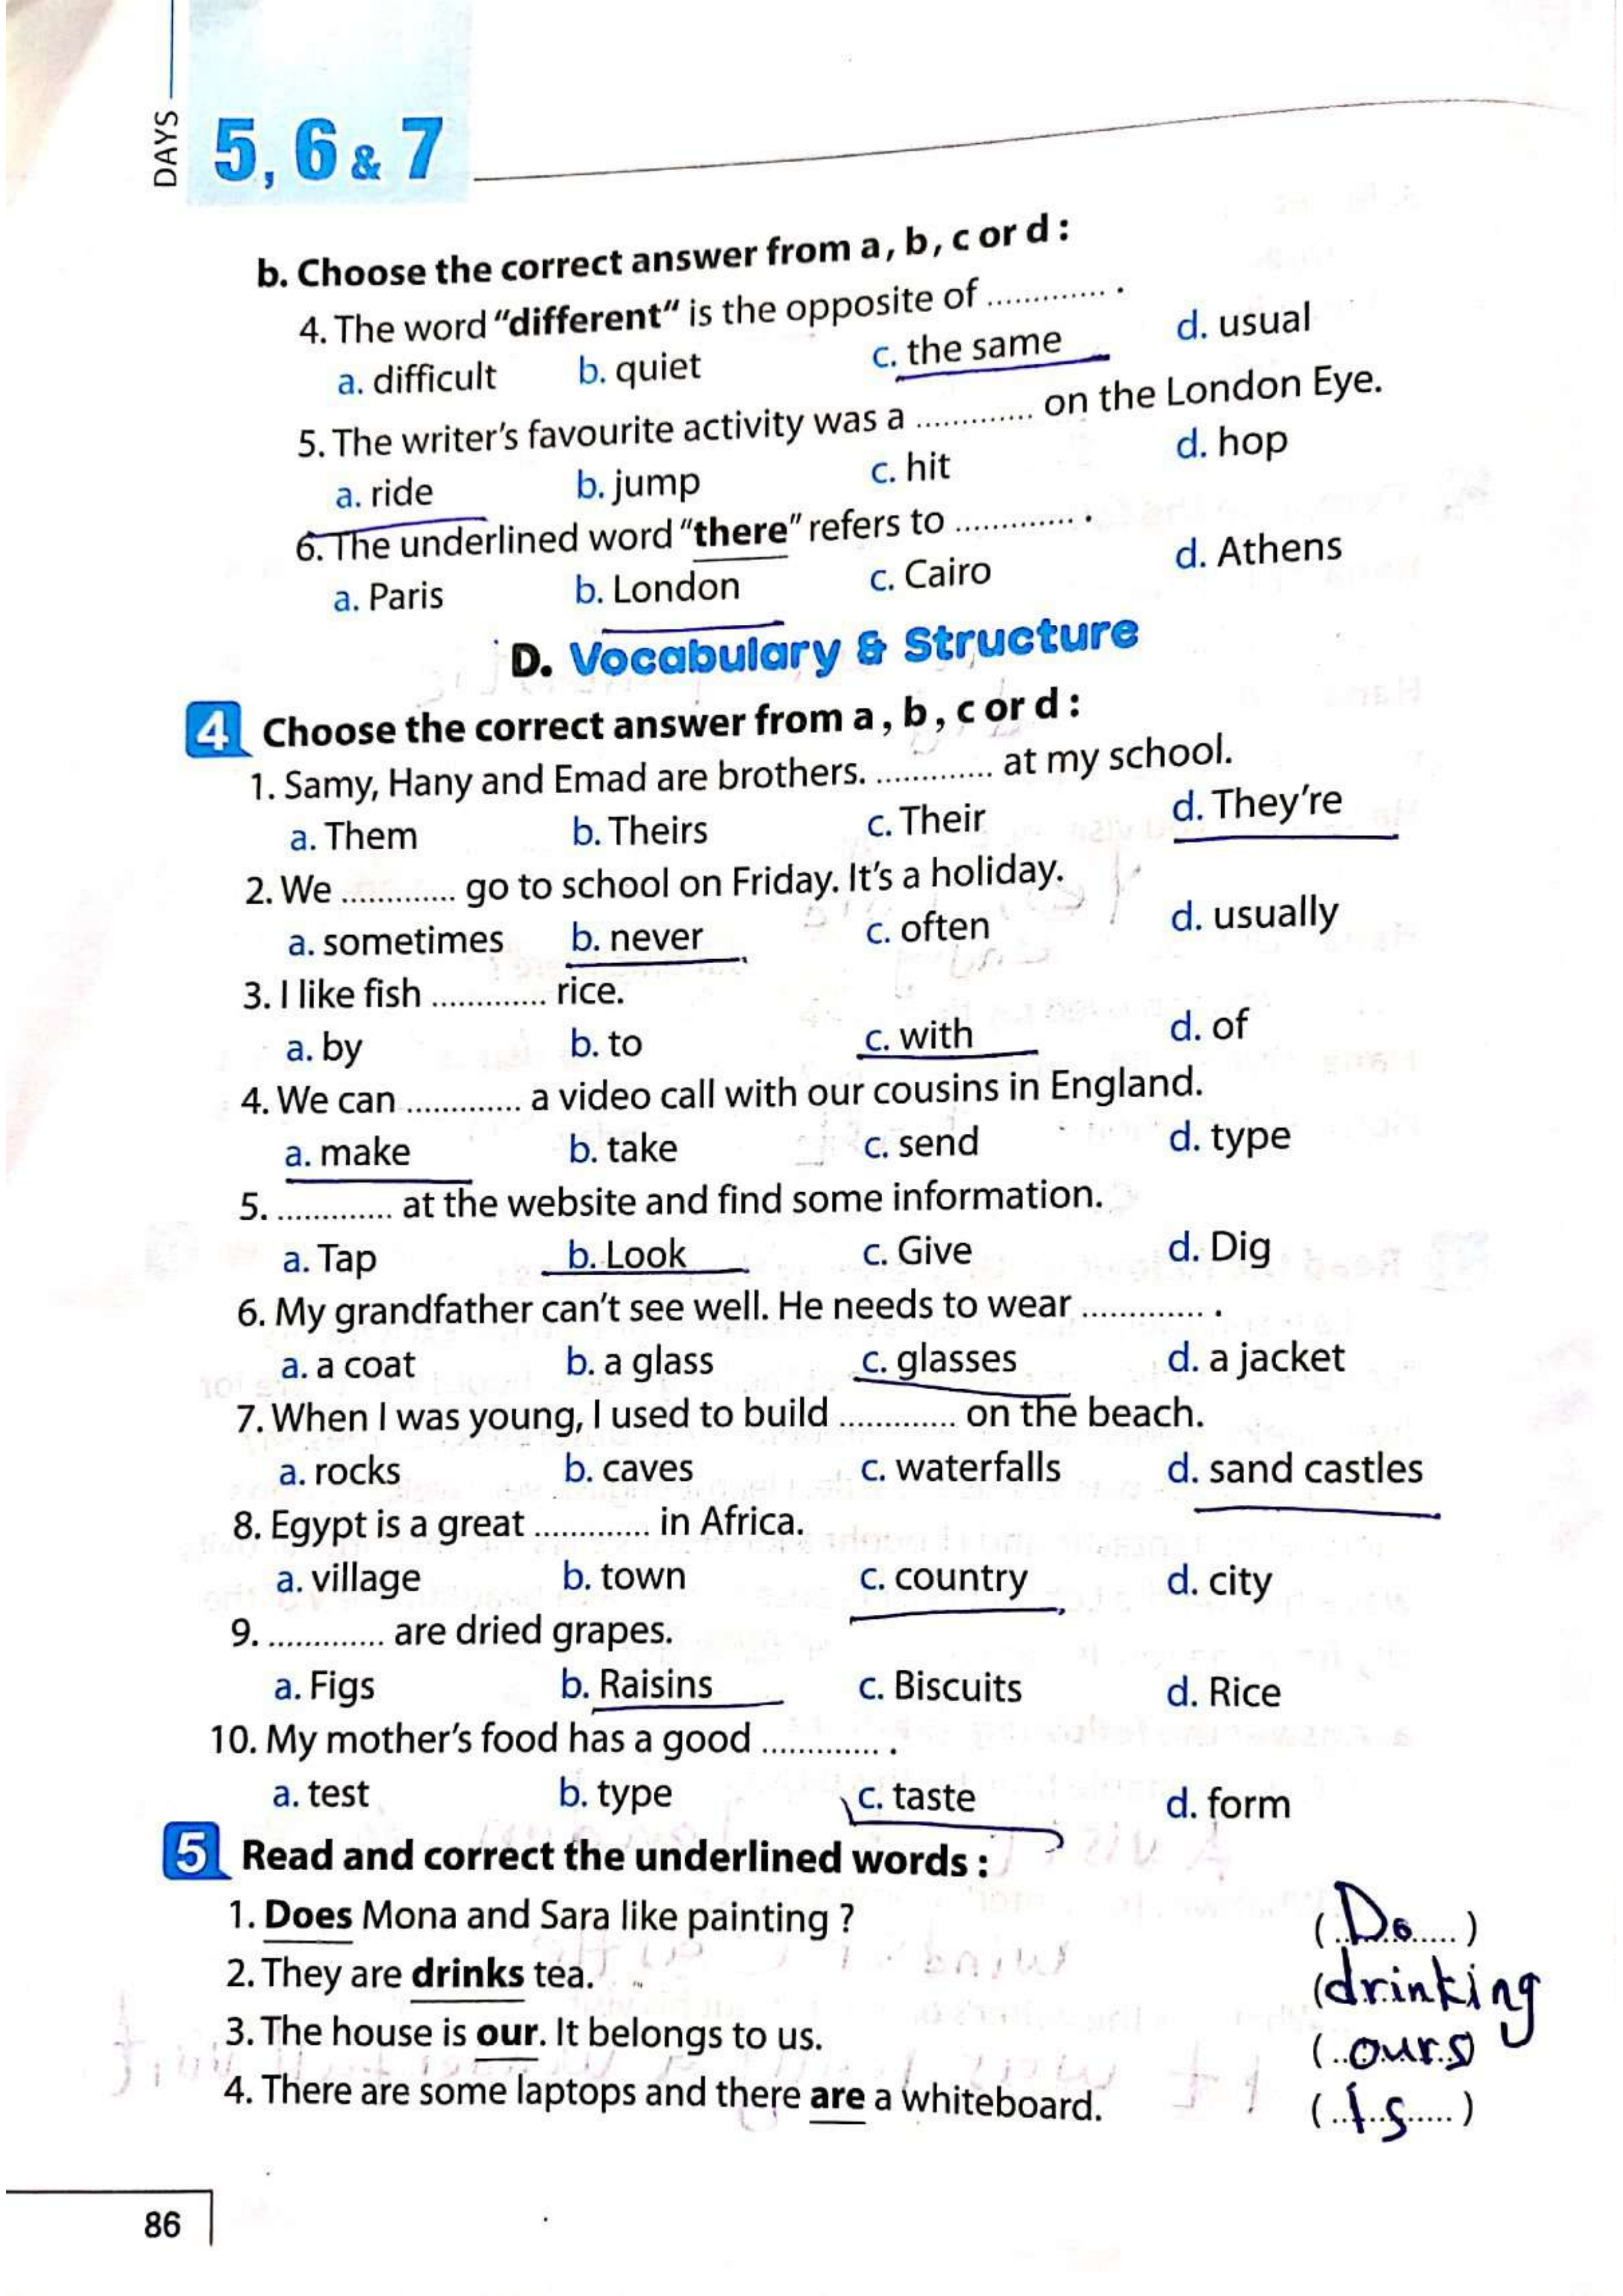 DAYS
5, 6 & 7
b. Choose the correct answer from a, b, c or d :
4. The word "different" is the opposite of ............. .
a. difficult b. quiet c. the same d. usual
5. The writer's favourite activity was a ............. on the London Eye.
a. ride b. jump c. hit d. hop
6. The underlined word "there" refers to ............. .
a. Paris b. London c. Cairo d. Athens
D. Vocabulary & Structure
4 Choose the correct answer from a, b, c or d :
1. Samy, Hany and Emad are brothers. ............. at my school.
a. Them b. Theirs c. Their d. They're
2. We ............. go to school on Friday. It's a holiday.
a. sometimes b. never c. often d. usually
3. I like fish ............. rice.
a. by b. to c. with d. of
4. We can ............. a video call with our cousins in England.
a. make b. take c. send d. type
5. ............. at the website and find some information.
a. Tap b. Look c. Give d. Dig
6. My grandfather can't see well. He needs to wear ............. .
a. a coat b. a glass c. glasses d. a jacket
7. When I was young, I used to build ............. on the beach.
a. rocks b. caves c. waterfalls d. sand castles
8. Egypt is a great ............. in Africa.
a. village b. town c. country d. city
9. ............. are dried grapes.
a. Figs b. Raisins c. Biscuits d. Rice
10. My mother's food has a good ............. .
a. test b. type c. taste d. form
5 Read and correct the underlined words :
1. Does Mona and Sara like painting ? (Do)
2. They are drinks tea. (drinking
3. The house is our. It belongs to us. (ours)
4. There are some laptops and there are a whiteboard. (Is)
86